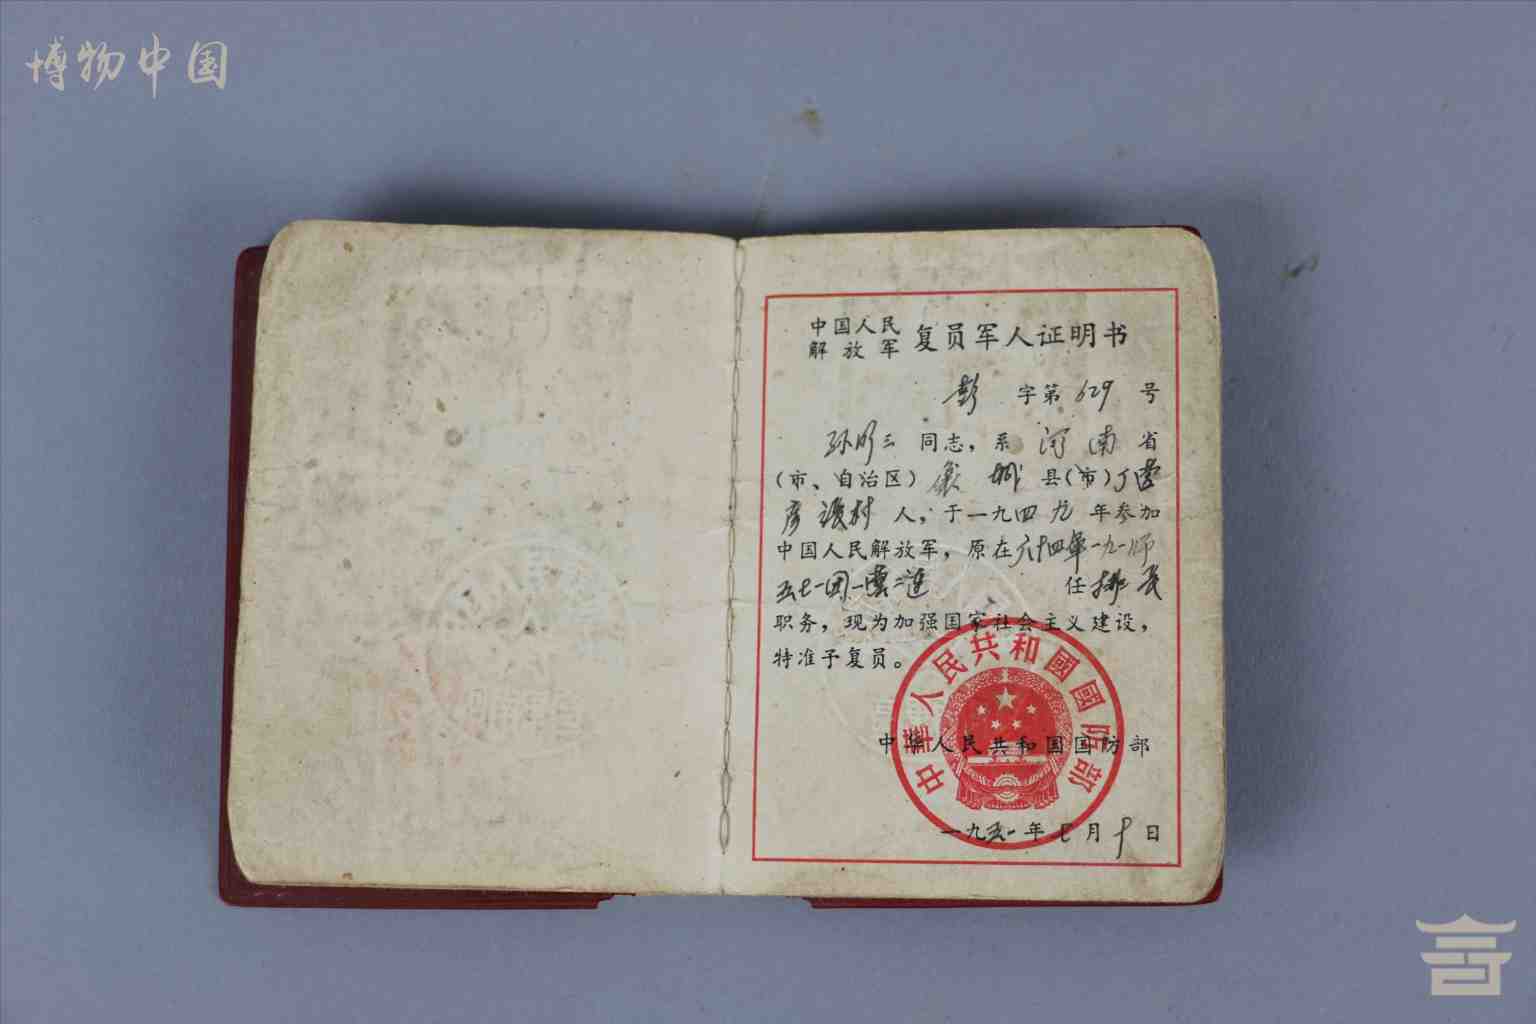 博物中国
中国人民
解放军 复员军人证明书
彭 字第 629 号
孙明三 同志，系 河南 省
（市、自治区） 城 县（市）
村 人，于一九四九年参加
中国人民解放军，原在六十四军一九一师
五七一团一营二连 任排长
职务，现为加强国家社会主义建设，
特准予复员。
中华人民共和国国防部
中华人民共和國國防部
一九五一年七月十日